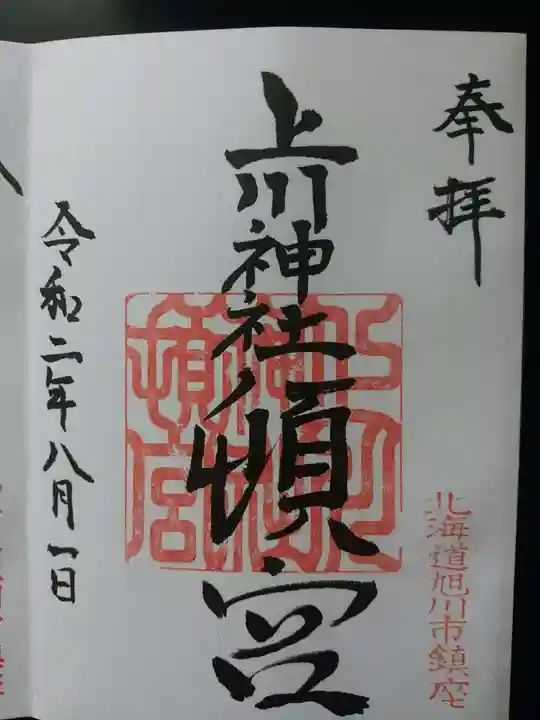 奉拝
北海道旭川市鎮座
上川神社頓宮
上川神社頓宮
令和二年八月一日